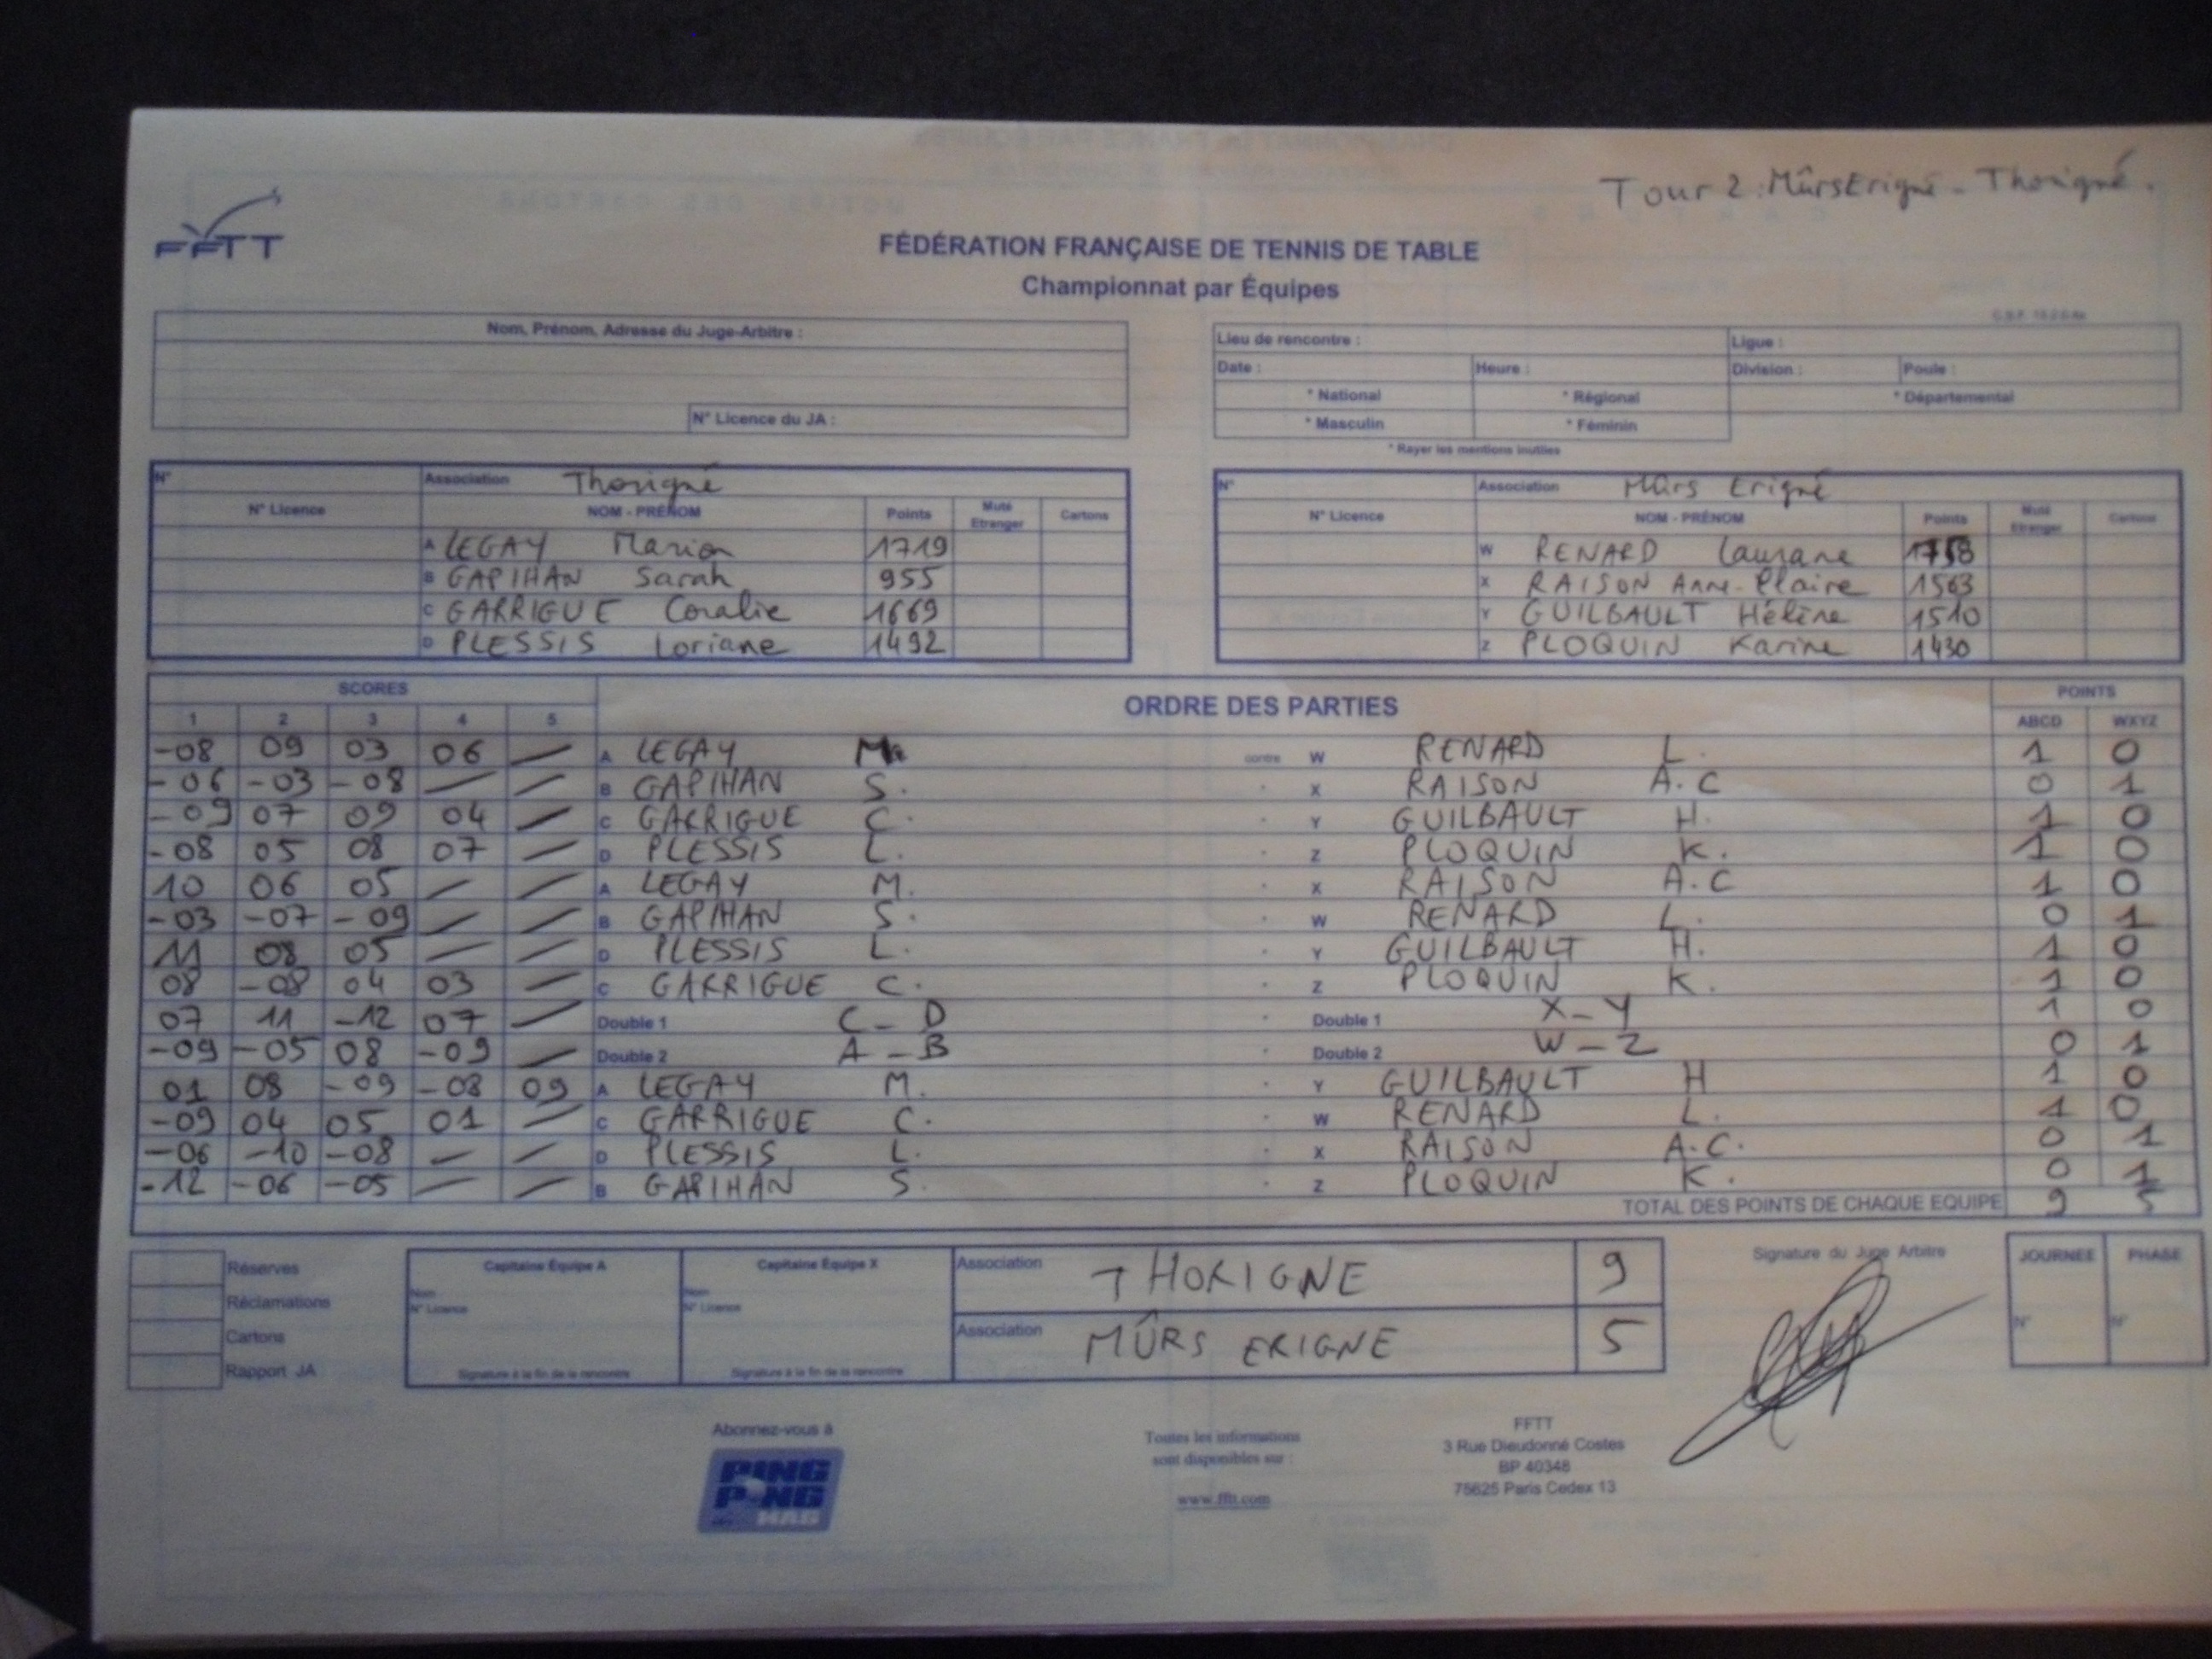 Tour 2 : Mûrs Erigné - Thorigné.
FFTT
FÉDÉRATION FRANÇAISE DE TENNIS DE TABLE
Championnat par Équipes
Nom, Prénom, Adresse du Juge-Arbitre :
N° Licence du JA :
Lieu de rencontre : Ligue :
Date : Heure : Division : Poule :
* National * Régional * Départemental
* Masculin * Féminin
* Rayer les mentions inutiles
N° Association Thorigné
N° Licence NOM - PRÉNOM Points Muté Etranger Cartons
A LEGAY Marion 1719
B GAPIHAN Sarah 955
C GARRIGUE Coralie 1669
D PLESSIS Loriane 1492
N° Association Mûrs Erigné
N° Licence NOM - PRÉNOM Points Muté Etranger Cartons
W RENARD Laurane
X RAISON Anne-Claire 1563
Y GUILBAULT Hélène 1510
Z PLOQUIN Karine 1430
SCORES ORDRE DES PARTIES POINTS
1 2 3 4 5 ABCD WXYZ
-08 09 03 06 — A LEGAY M. contre W RENARD L. 1 0
-06 -03 -08 — — B GAPIHAN S. X RAISON A.C 0 1
-09 07 09 04 — C GARRIGUE C. Y GUILBAULT H. 1 0
-08 05 08 07 — D PLESSIS L. Z PLOQUIN K. 1 0
10 06 05 — — A LEGAY M. X RAISON A.C 1 0
-03 -07 -09 — — B GAPIHAN S. W RENARD L. 0 1
11 08 05 — — D PLESSIS L. Y GUILBAULT H. 1 0
08 -08 04 03 — C GARRIGUE C. Z PLOQUIN K. 1 0
07 11 -12 07 — Double 1 C - D Double 1 X - Y 1 0
-09 -05 08 -09 — Double 2 A - B Double 2 W - Z 0 1
01 08 -09 -08 09 A LEGAY M. Y GUILBAULT H 1 0
-09 04 05 01 — C GARRIGUE C. W RENARD L. 1 0
-06 -10 -08 — — D PLESSIS L. X RAISON A.C. 0 1
-12 -06 -05 — — B GAPIHAN S. Z PLOQUIN K. 0 1
TOTAL DES POINTS DE CHAQUE EQUIPE 9 5
Réserves
Réclamations
Cartons
Rapport JA
Capitaine Équipe A
Nom
N° Licence
Signature à la fin de la rencontre
Capitaine Équipe X
Nom
N° Licence
Signature à la fin de la rencontre
Association THORIGNE 9
Association MÛRS ERIGNE 5
Signature du Juge Arbitre
JOURNEE PHASE
N° N°
Abonnez-vous à
PING PONG MAG
Toutes les informations
sont disponibles sur :
www.fftt.com
FFTT
3 Rue Dieudonné Costes
BP 40348
75625 Paris Cedex 13